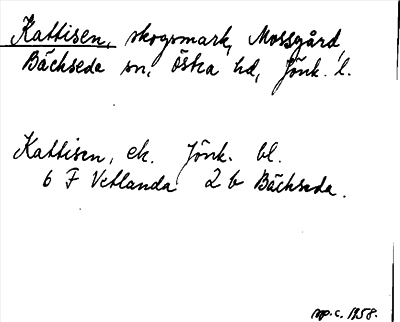 Kattisen, skogsmark, Mossgård,
Bäckseda sn, Östra hd, Jönk. l.
Kattisen, ek. Jönk. bl.
6 F Vetlanda 2 b Bäckseda.
op. c. 1958.